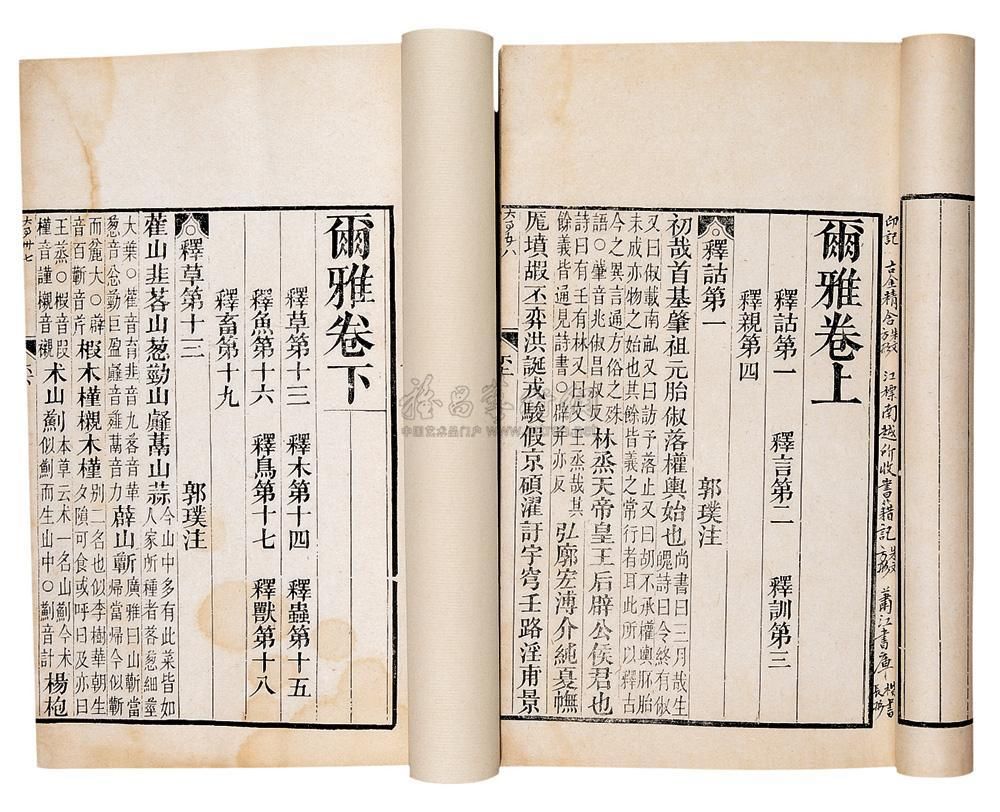 爾雅卷上
釋詁第一 釋言第二 釋訓第三
釋親第四
釋詁第一 郭璞注
初哉首基肇祖元胎俶落權輿始也尚書曰三月哉生
魄詩曰令終有俶
又曰俶載南畝又曰訪予落止又曰胡不承權輿胚胎
未成亦物之始也其餘皆義之常行者耳此所以釋古
今之異言通方俗之殊
語○肇音兆俶昌叔反林烝天帝皇王后辟公侯君也
詩曰有壬有林又曰文王烝哉其
餘義皆通見詩書○辟音璧弈亦反弘廓宏溥介純夏幠
厖墳嘏丕弈洪誕戎駿假京碩濯訏宇穹壬路淫甫景
爾雅卷下
釋草第十三 釋木第十四 釋蟲第十五
釋魚第十六 釋鳥第十七 釋獸第十八
釋畜第十九
釋草第十三 郭璞注
藿山韭茖山葱葝山䪥蒚山蒜今山中多有此菜皆如
人家所種者茖葱細莖
大葉○藿音育韭音九茖音革
葱音怱葝巨盈䪥音薤蒚音力薜山蘄廣雅曰山蘄當
歸當歸今似蘄
而麄大○薜
音百蘄音芹椵木槿櫬木槿別二名也似李樹華朝生
夕隕可食或呼日及亦曰
王蒸○椵音段
槿音謹櫬音襯朮山薊本草云朮一名山薊今朮
似薊而生山中○薊音計楊枹
印記
江標南越所收書籍記
蕭江書庫
中国艺术品门户